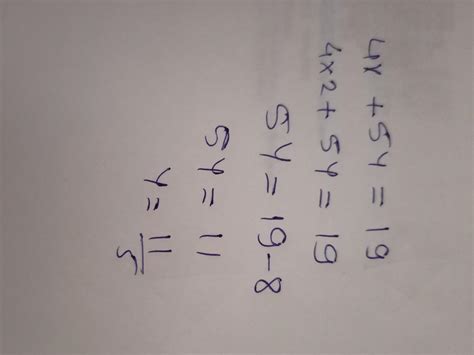 4x + 5y = 19
4x2 + 5y = 19
5y = 19-8
5y = 11
y = 11/5